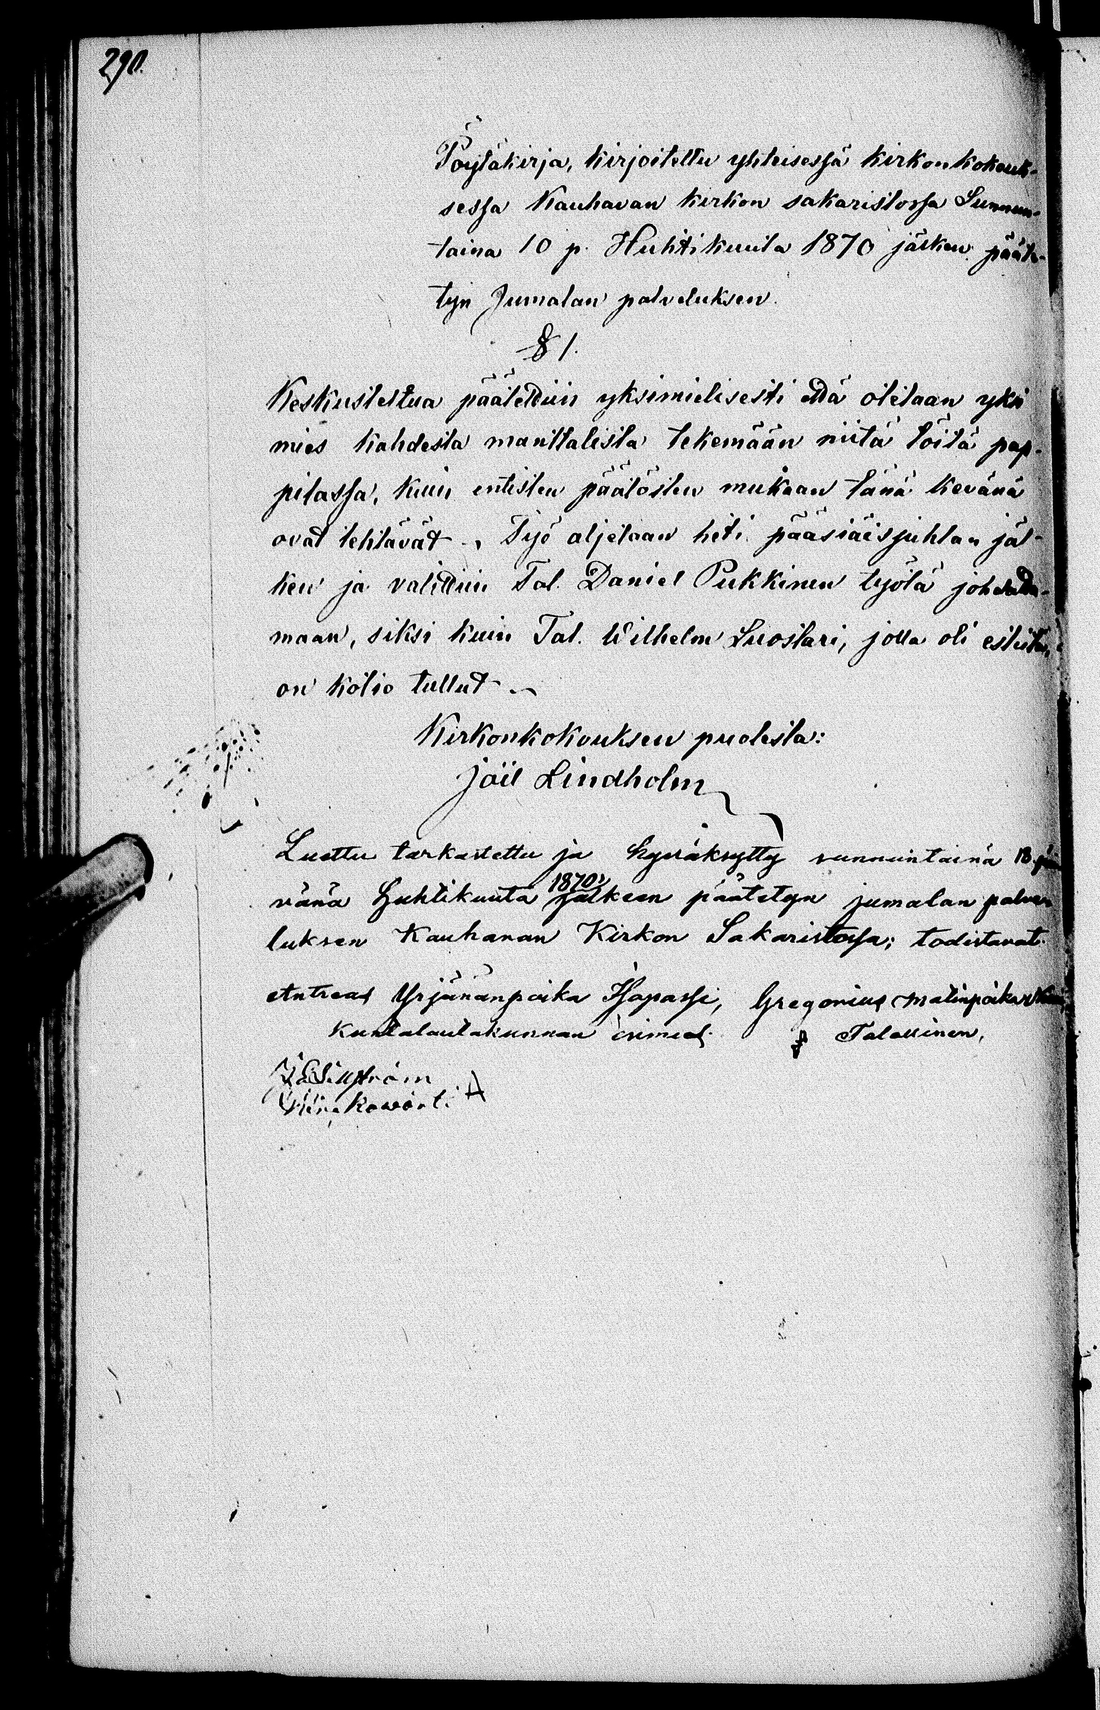 290.
Pöytäkirja, kirjoitettu yhteisessä kirkonkokouk-
sessa Kauhavan kirkon sakaristossa Sunnun-
taina 10 p. Huhtikuuta 1870 jälkeen pääte-
tyn Jumalan palveluksen.
§ 1.
Keskusteltua päätettiin yksimielisesti että otetaan yksi
mies kahdesta manttalista tekemään niitä töitä pap-
pilassa, kuin entisten päätösten mukaan tänä kevänä
ovat tehtävät. Työ aljetaan heti pääsiäisjuhlan jäl-
ken ja valittiin Tal. Daniel Pukkinen työtä johdatta-
maan, siksi kuin Tal. Wilhelm Luostari, jolla oli esteitä,
on kotio tullut.
Kirkonkokouksen puolesta:
Joël Lindholm
Luettu tarkastettu ja hyväksytty sunnuntaina 18 päi
vänä huhtikuuta 1870 jälkeen päätetyn jumalan palve
luksen Kauhavan Kirkon Sakaristossa; todistavat.
Antreas Yrjänänpoika Gregorius Matinpoika
kuntalautakunnan esimies. Talollinen,